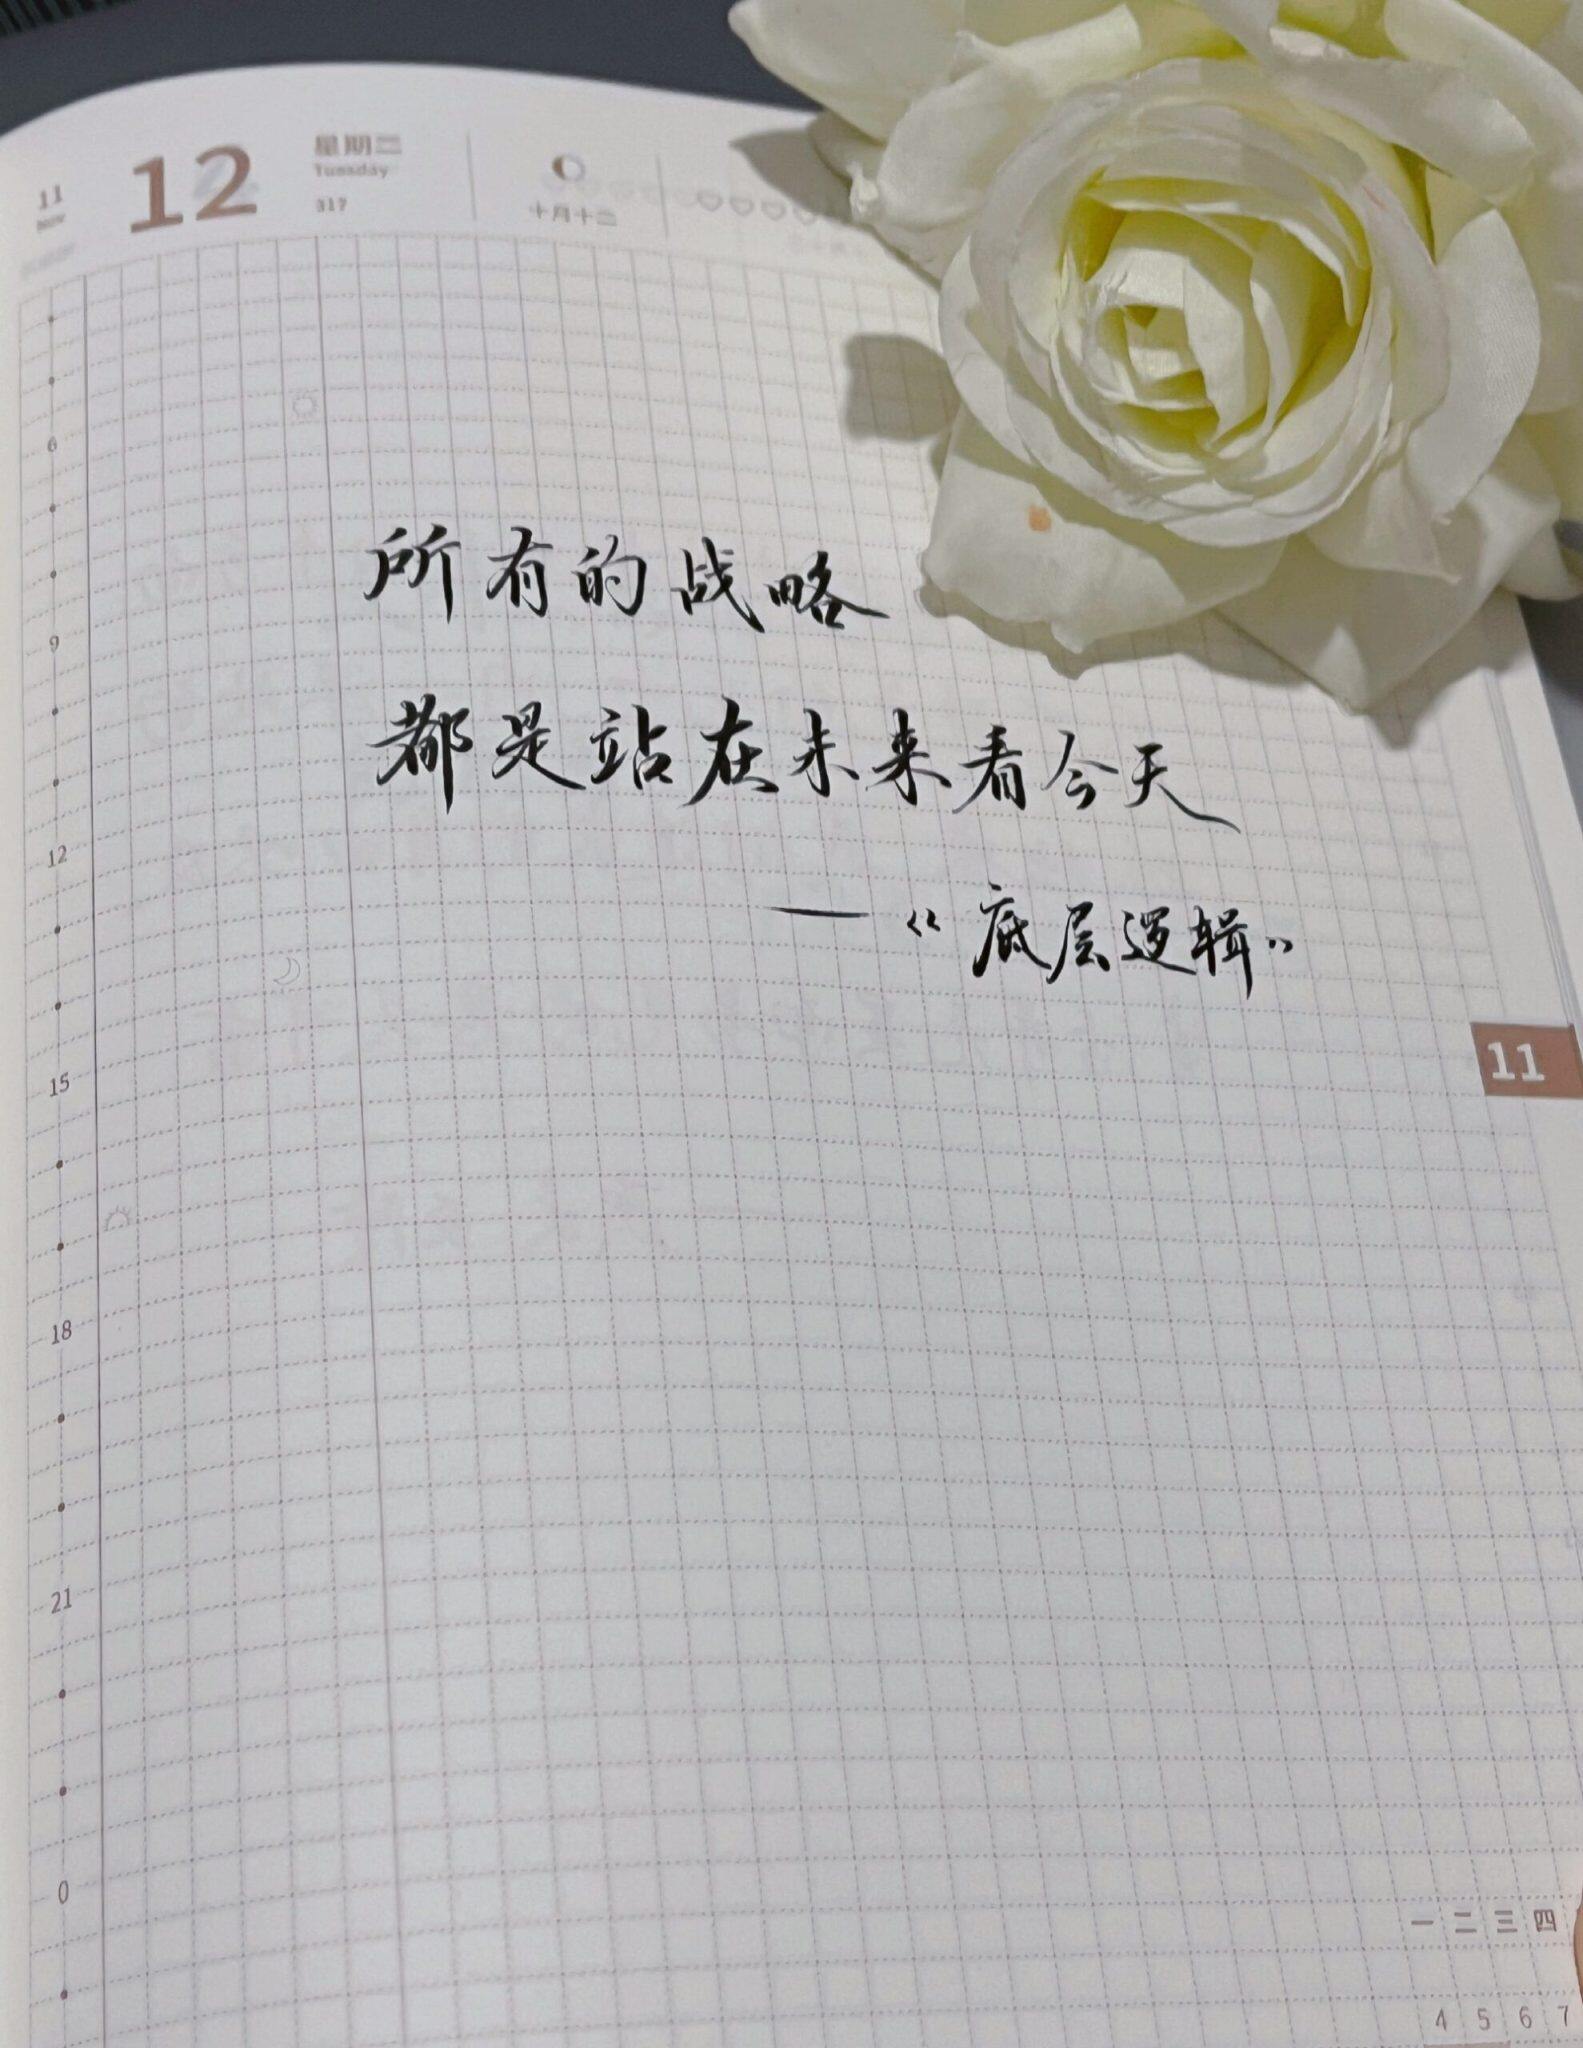 11
NOV
12
星期二
Tuesday
317
十月十二
6
所有的战略
9
都是站在未来看今天
12
——《底层逻辑》
15
11
18
21
0
一 二 三 四
4 5 6 7